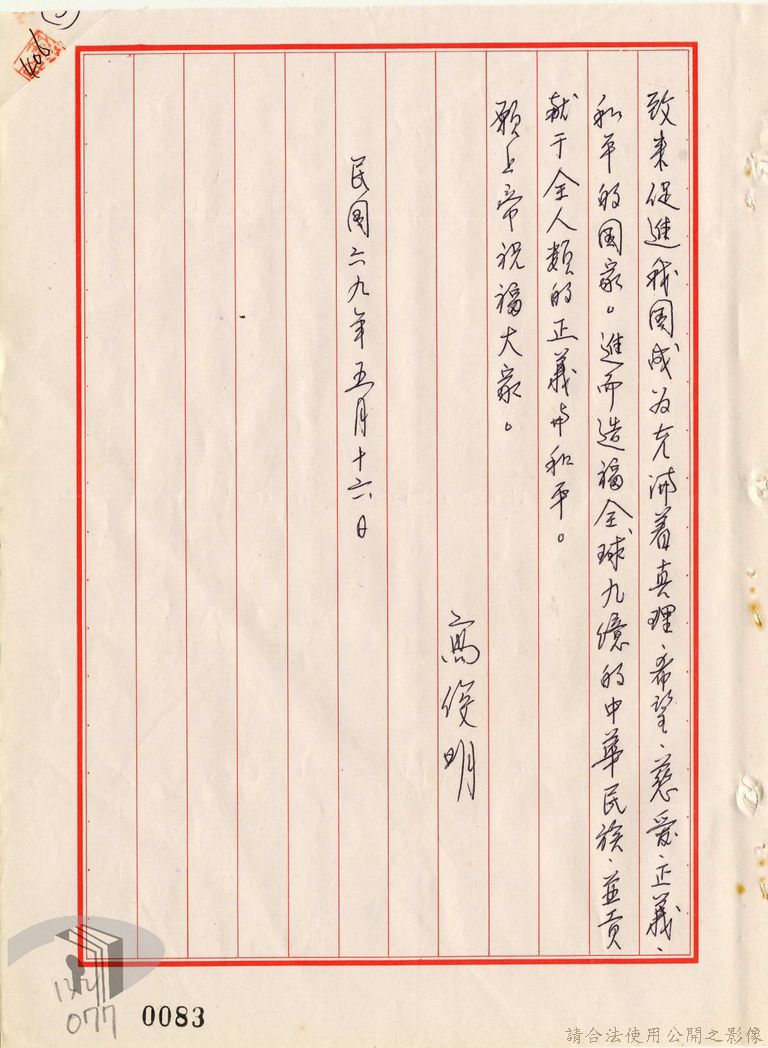 致来促進我國成为充满着真理、希望、慈爱、正義、
和平的国家。進而造福全球九億的中華民族、並貢
献于全人類的正義与和平。
願上帝祝福大家。
高俊明
民国六九年五月十六日
077
0083
請合法使用公開之影像